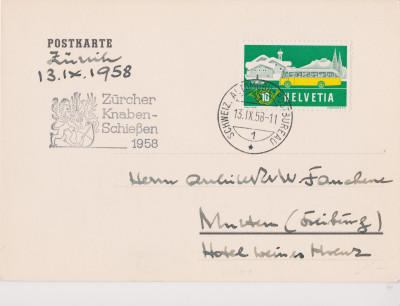 POSTKARTE
Zürich
13.IX.1958
Zürcher
Knaben-
Schießen
1958
10
HELVETIA
SCHWEIZ. BUREAU
13.IX.58-11
1
Herrn
Murten (Freiburg)
Hotel weisses Kreuz